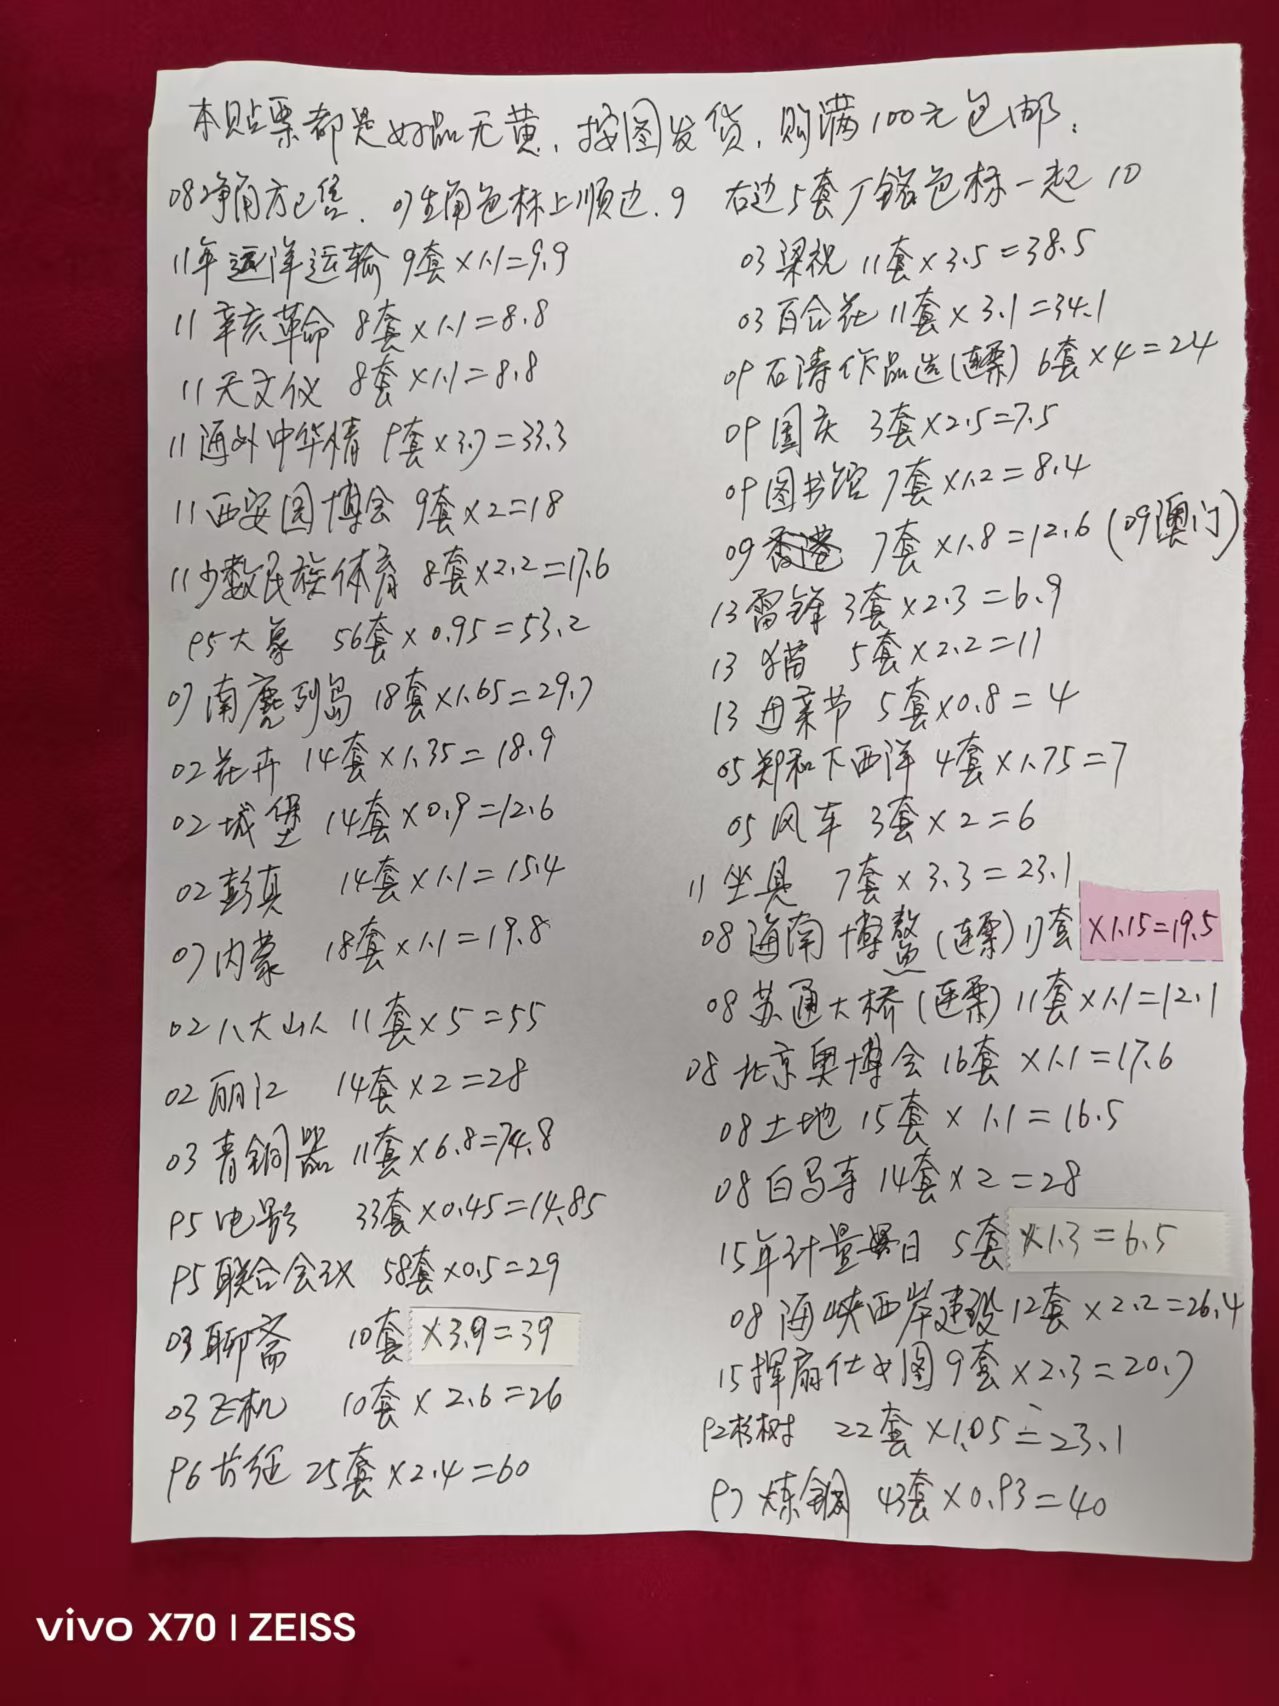 本贴票都是好品无黄，按图发货，购满100元包邮.
08净角方已售、07生角色标上顺边.9
右边5套厂铭色标一起 10
11年远洋运输 9套×1.1=9.9
11辛亥革命 8套×1.1=8.8
11天文仪 8套×1.1=8.8
11海外中华情 9套×3.7=33.3
11西安园博会 9套×2=18
11少数民族体育 8套×2.2=17.6
95大象 56套×0.95=53.2
07南麂列岛 18套×1.65=29.7
02花卉 14套×1.35=18.9
02城堡 14套×0.9=12.6
02彭真 14套×1.1=15.4
07内蒙 18套×1.1=19.8
02八大山人 11套×5=55
02丽江 14套×2=28
03青铜器 11套×6.8=74.8
95电影 33套×0.45=14.85
95联合会议 58套×0.5=29
03聊斋 10套×3.9=39
03飞机 10套×2.6=26
96古纸 25套×2.4=60
03梁祝 11套×3.5=38.5
03百合花 11套×3.1=34.1
09石涛作品选(连票) 6套×4=24
09国庆 3套×2.5=7.5
09图书馆 7套×1.2=8.4
09香港 7套×1.8=12.6 (09澳门)
13雷锋 3套×2.3=6.9
13猫 5套×2.2=11
13母亲节 5套×0.8=4
05郑和下西洋 4套×1.75=7
05风车 3套×2=6
11坐具 7套×3.3=23.1
08海南博鳌(连票)17套×1.15=19.5
08苏通大桥(连票)11套×1.1=12.1
08北京奥博会 16套×1.1=17.6
08土地 15套×1.1=16.5
08白马寺 14套×2=28
15年计量日 5套×1.3=6.5
08海峡西岸建设 12套×2.2=26.4
15挥扇仕女图 9套×2.3=20.7
92杉树 22套×1.05=23.1
97炼钢 43套×0.93=40
vivo X70 | ZEISS